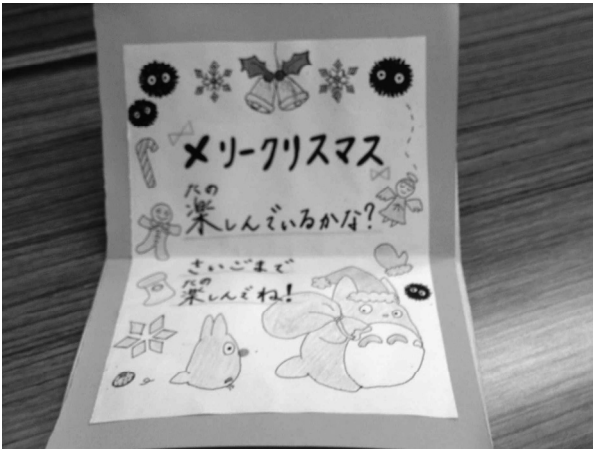 メリークリスマス
たの
楽しんでいるかな?
さいごまで
たの
楽しんでね!